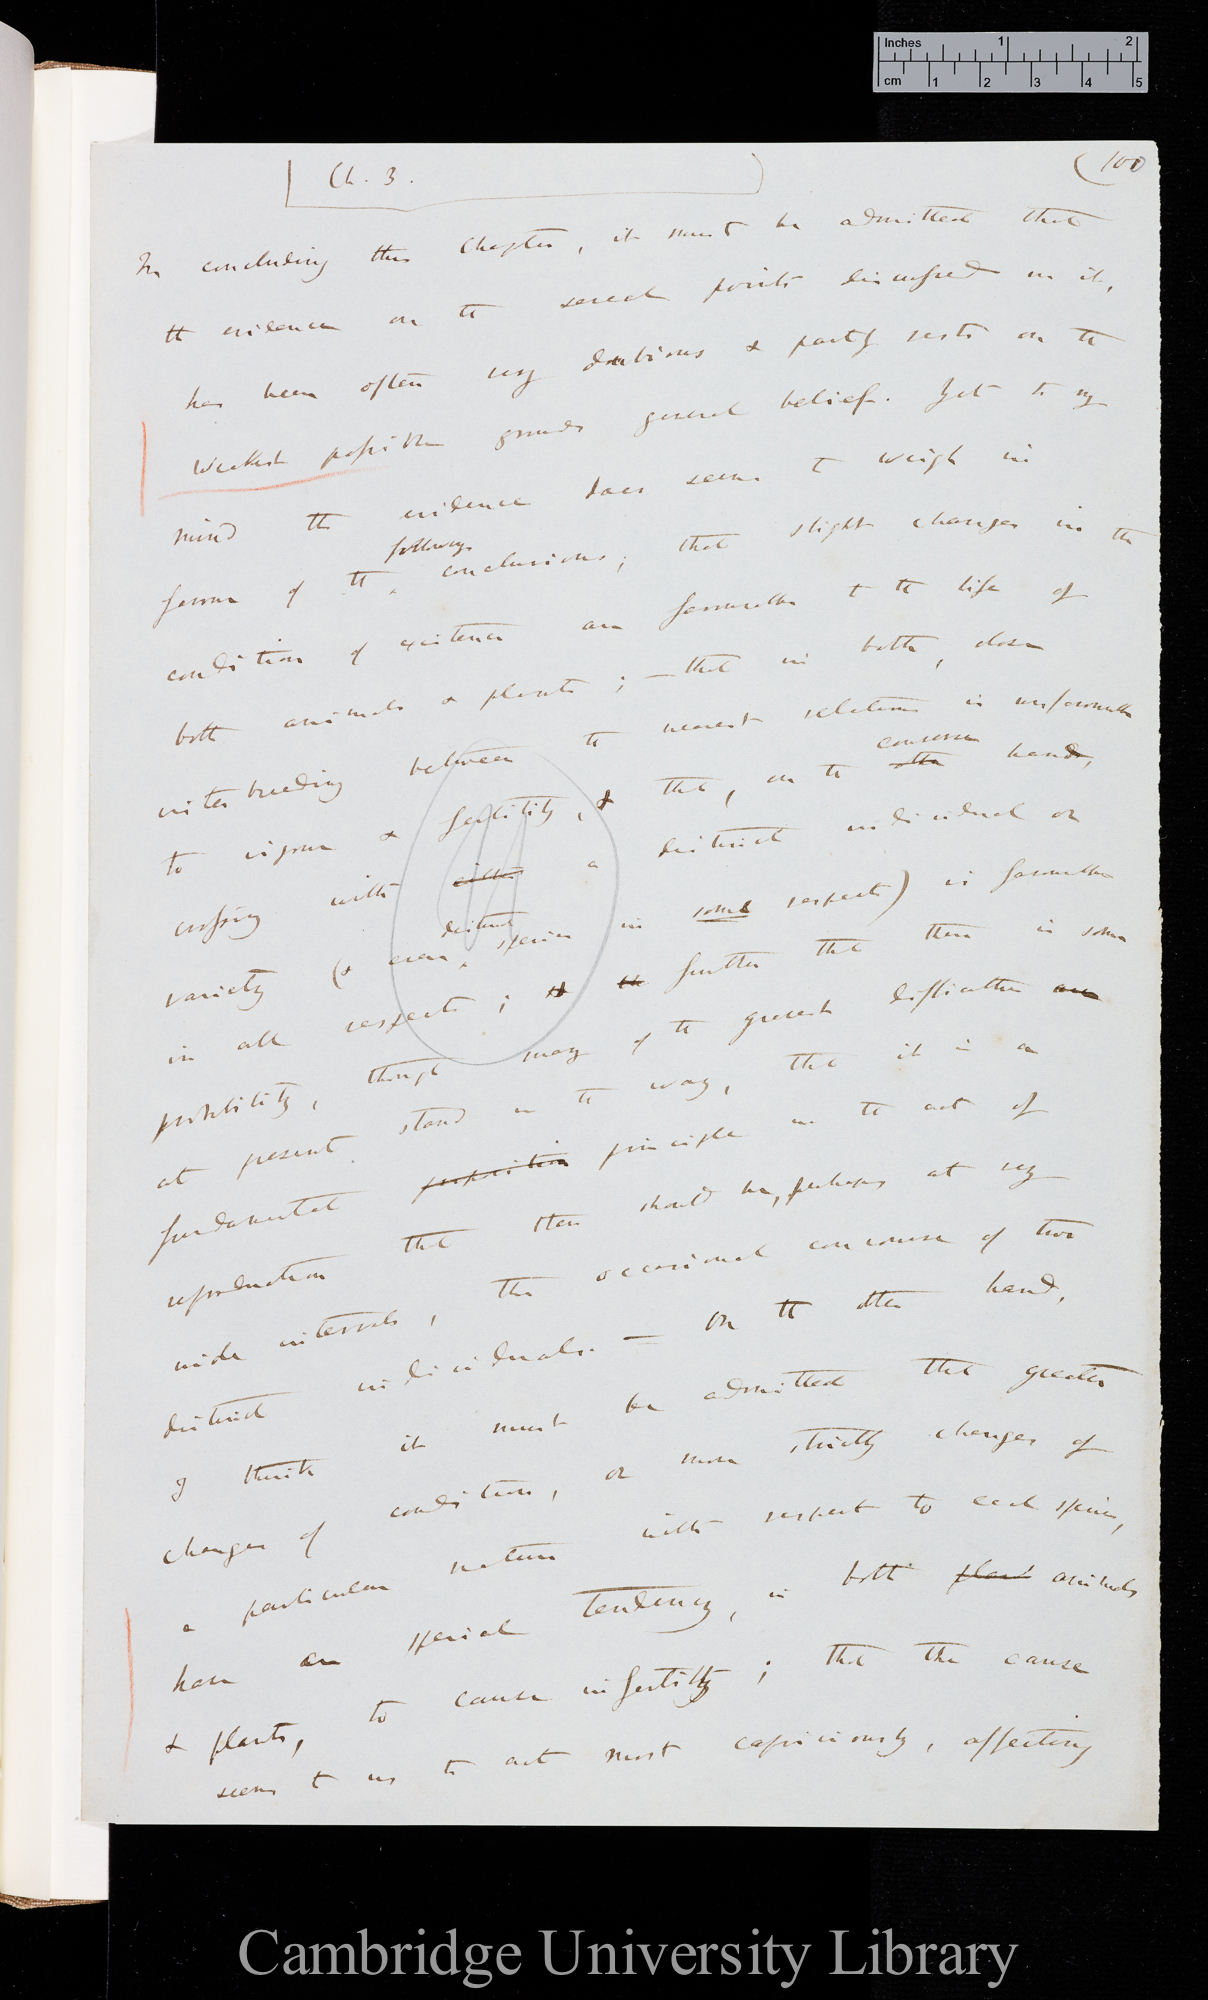 Inches 1 2
cm 1 2 3 4 5
Ch. 3.
(100
In concluding this chapter, it must be admitted that
the evidence on the several points discussed in it,
has been often very doubtious & partly rests on the
weakest possible grounds general belief. Yet to my
mind the evidence does seem to weigh in
following
favour of the conclusions; that slight changes in the
condition of existence are favourable to the life of
both animals & plants; — that in both, close
interbreeding between the nearest relations is unfavourable
converse
to vigour & fertility, & that, on the other hand,
crossing with either a distinct individual or
distinct
variety (& even species in some respects) is favourable
in all respects; further that there is some
probability, though many of the greatest difficulties are
at present stand in the way, that it is a
fundamental proposition principle in the act of
reproduction that there should be, perhaps at very
wide intervals, the occasional concourse of two
distinct individuals. — On the other hand,
I think it must be admitted that greater
changes of condition, or more strictly changes of
a particular nature with respect to each species,
have an special tendency, in both plant animals
& plants, to cause infertility; that the cause
seems to us to act most capriciously, affecting
Cambridge University Library